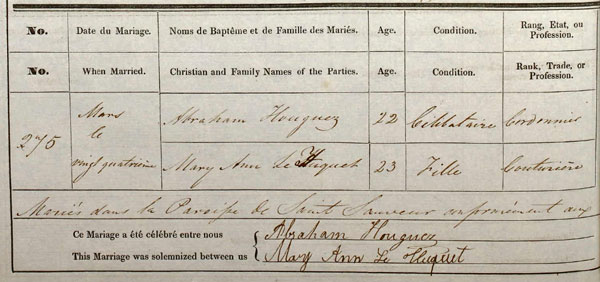 No. Date du Mariage. Noms de Baptême et de Famille des Mariés. Age. Condition. Rang, Etat, ou Profession.
No. When Married. Christian and Family Names of the Parties. Age. Condition. Rank, Trade, or Profession.
275 Mars le vingt quatrième
Abraham Houguez 22 Célibataire Cordonnier
Mary Ann Le Huquet 23 Fille Couturière
Mariés dans la Paroisse de Saint Sauveur conformément aux
Ce Mariage a été célébré entre nous Abraham Houguez
This Marriage was solemnized between us Mary Ann Le Huquet